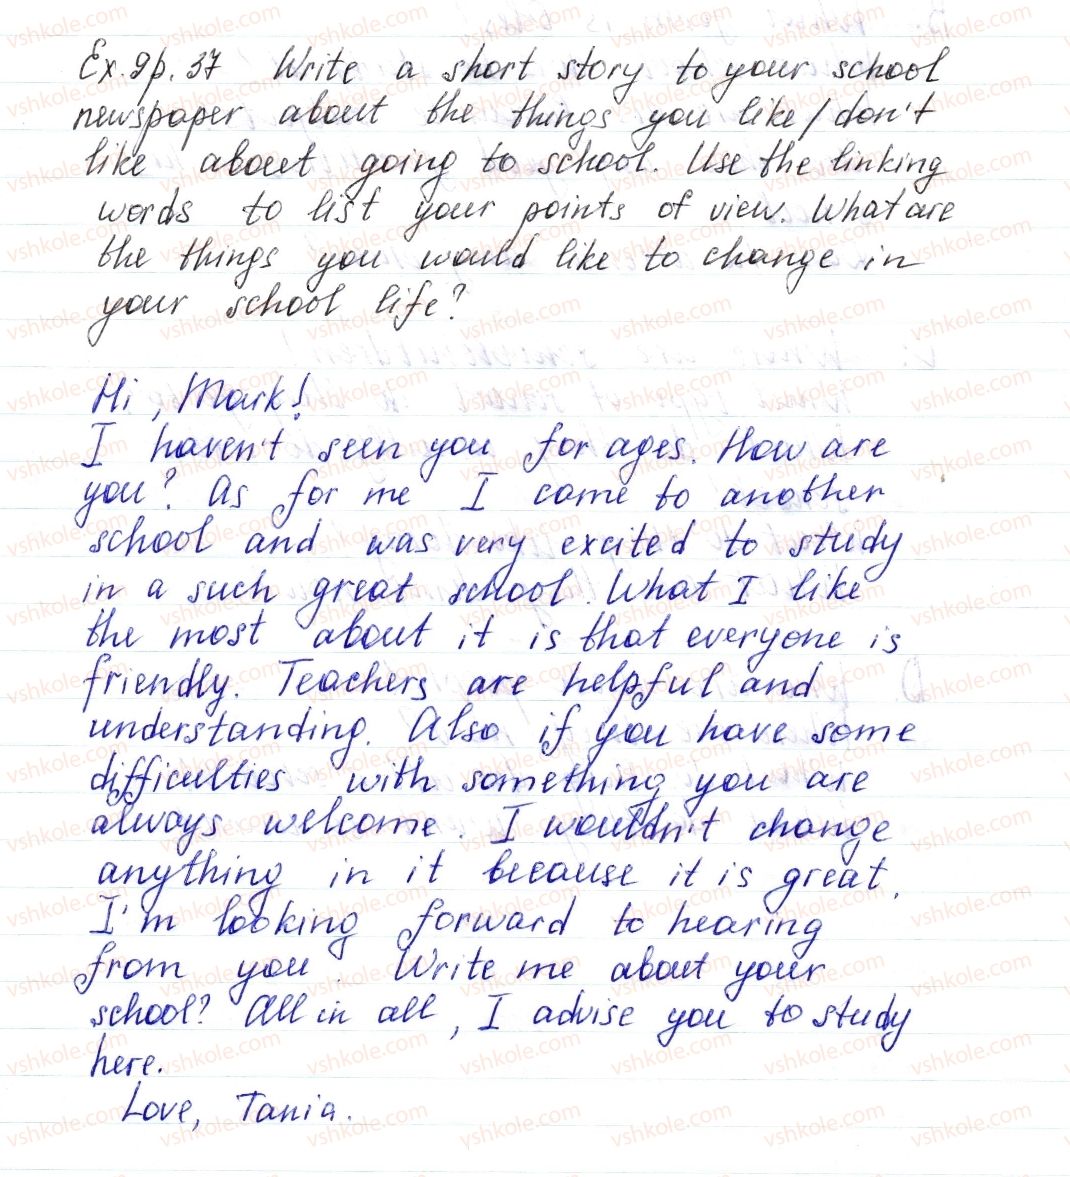 Ex. 9 p. 37 Write a short story to your school
newspaper about the things you like/don't
like about going to school. Use the linking
words to list your points of view. What are
the things you would like to change in
your school life?
Hi, Mark!
I haven't seen you for ages. How are
you? As for me I came to another
school and was very excited to study
in a such great school. What I like
the most about it is that everyone is
friendly. Teachers are helpful and
understanding. Also if you have some
difficulties with something you are
always welcome. I wouldn't change
anything in it because it is great.
I'm looking forward to hearing
from you. Write me about your
school? All in all, I advise you to study
here.
Love, Tania.